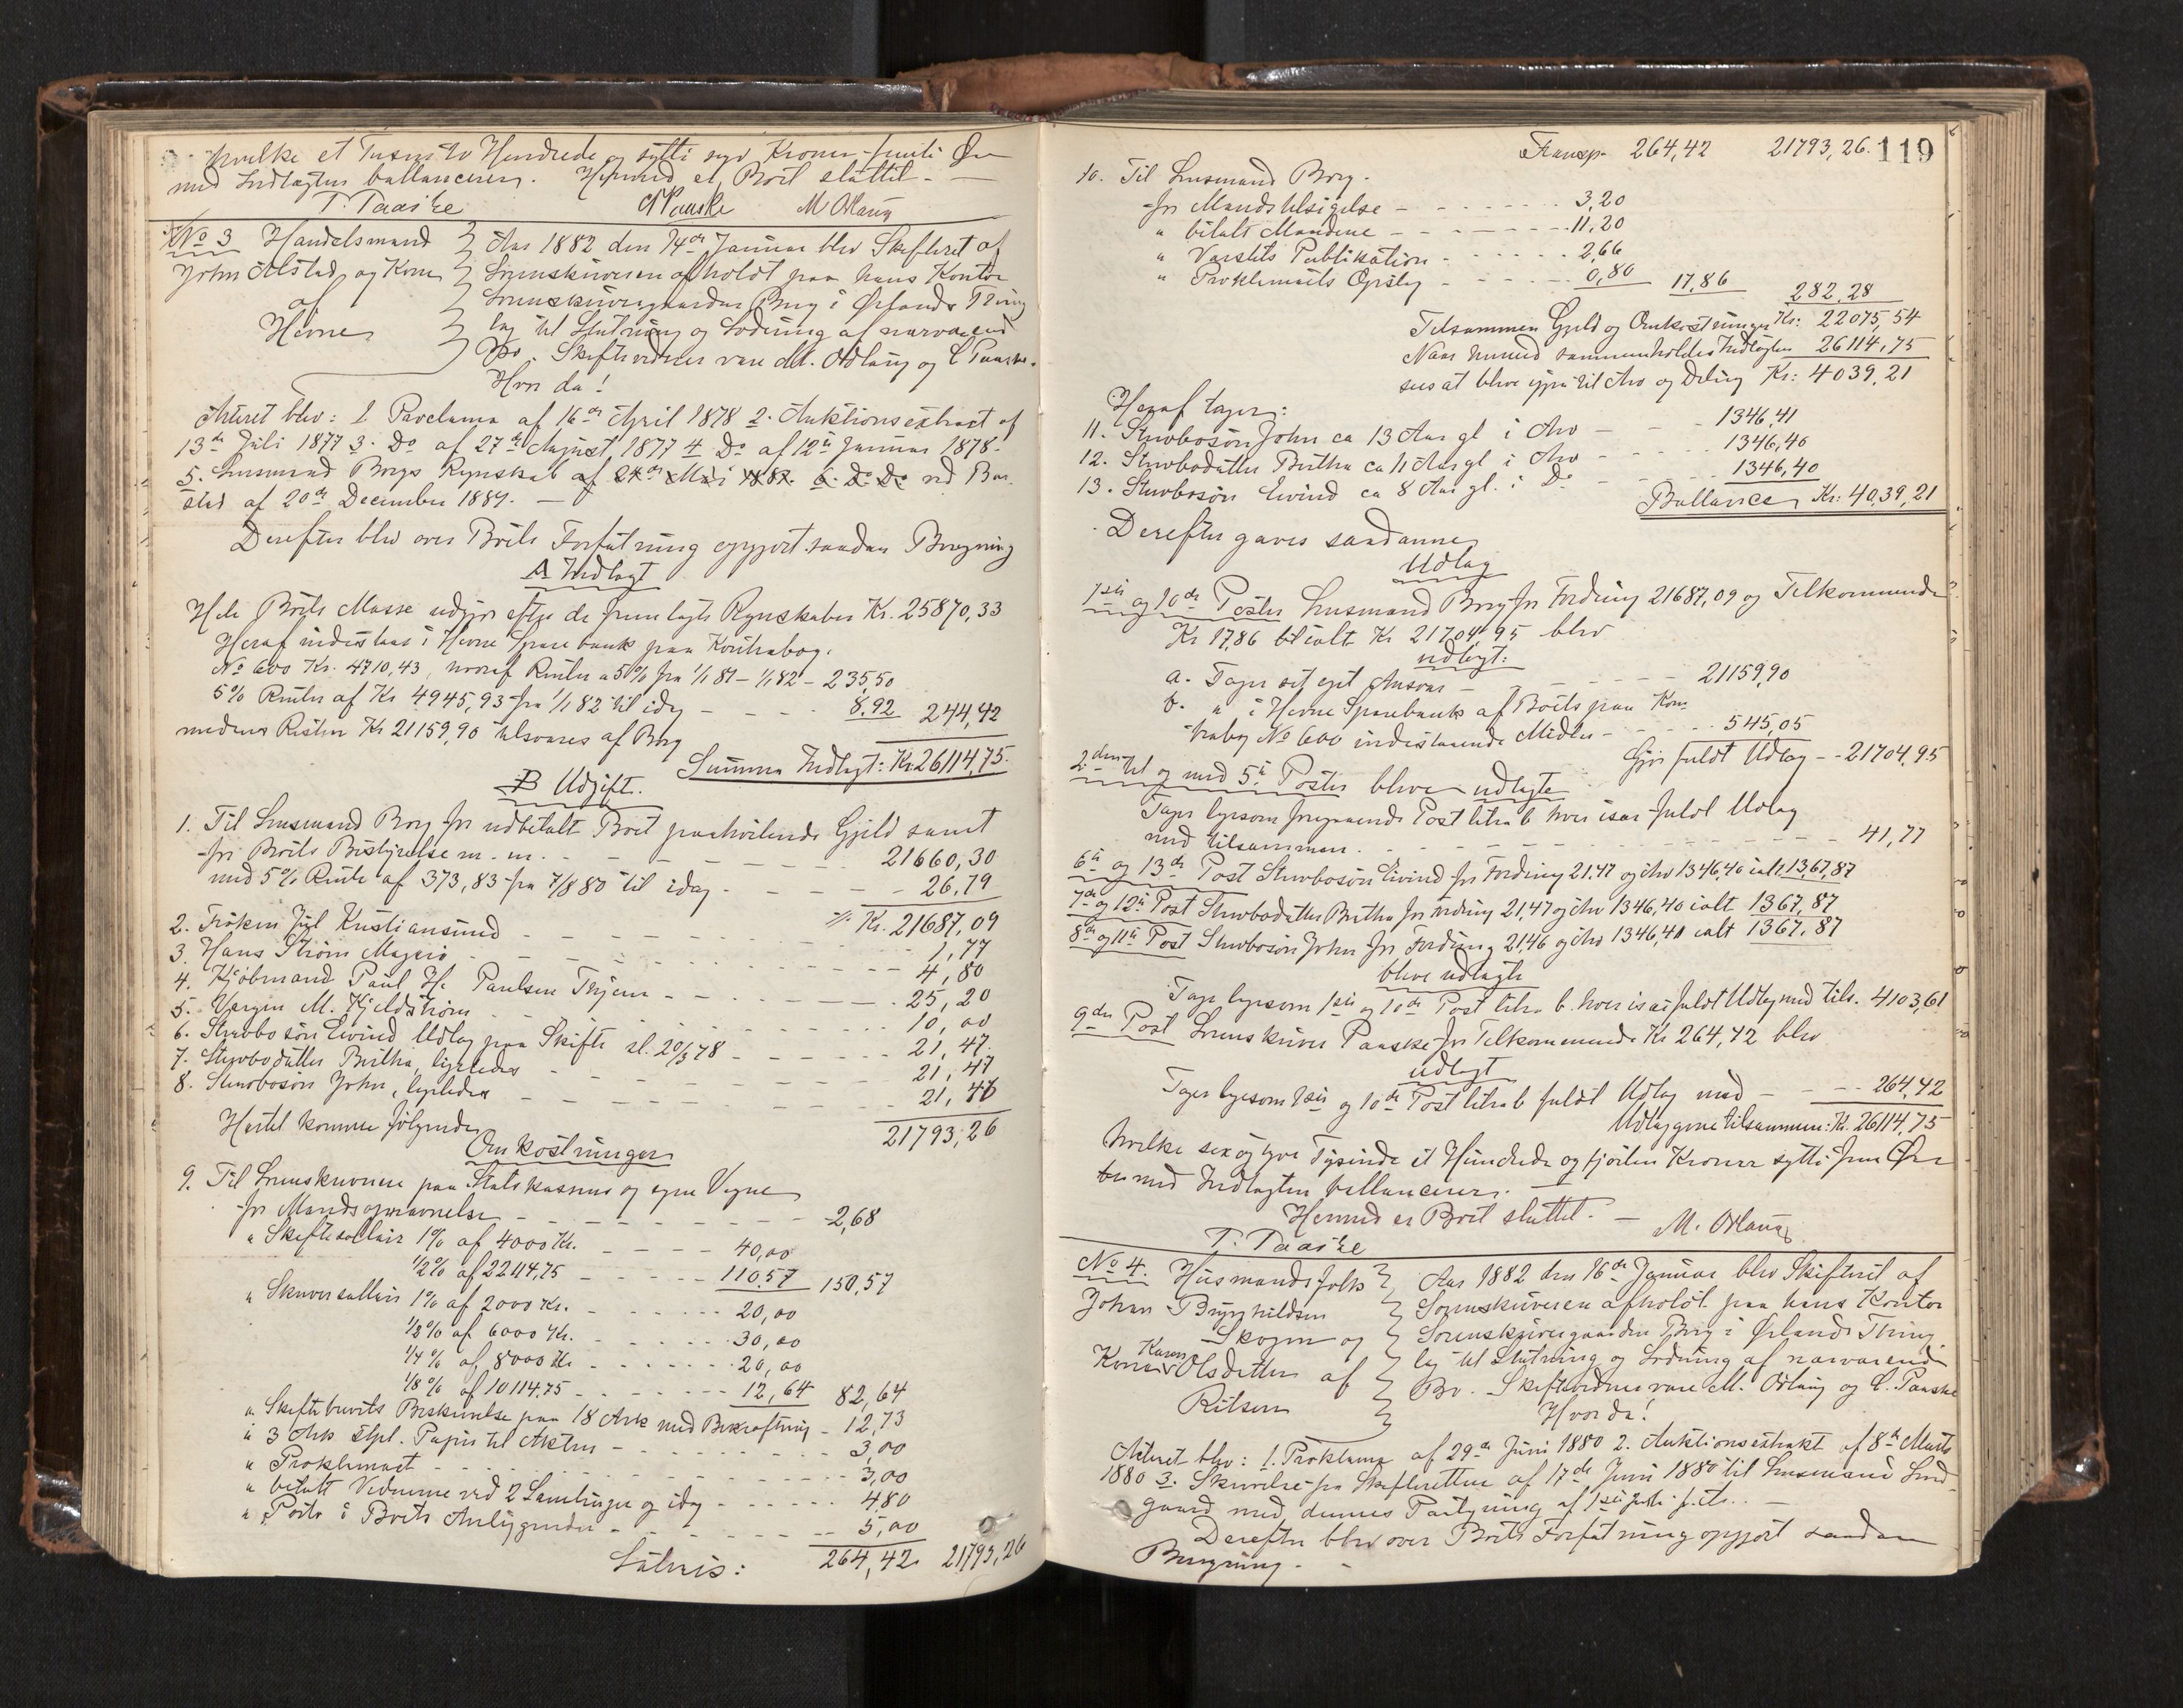 hvilke et Tusind to Hundrede og sytti syv Kroner femti Øre
med Indtægten ballancerer. Hermed er Boet sluttet. —
T. Taaske M Ørlaug
No 3 Handelsmand
John Alstad og Kone
af
Hevne
Aar 1882 den 14de Januar blev Skifteret af
Sorenskriveren afholdt paa hans Kontor
Sorenskrivergaarden Borg i Ørlands Thing
lag til Slutning og Lodning af nærværende
Bo. Skiftevidner vare M. Ørlaug og C Paaske.
Hvor da!
Akteret blev: 1 Proclama af 16de April 1878 2. Auktionsextract af
13de Juli 1877 3. Do af 27de August 1877 4 Do af 12te Januar 1878.
5. Lensmand Borgs Regnskab af 24de Mai 1882. 6. Do Do ved Bar-
stad af 20de December 1881. —
Derefter blev over Boets Forfatning opgjort saadan Beregning
A Indtægt
Hele Boets Masse udgjør efter de fremlagte Regnskaber Kr. 25870,33
Heraf indestaar i Hevne Sparebank paa Kontrabog.
No 600 Kr. 4710,43, hvoraf Renter a 5% fra 1/1 81 – 1/1 82 – 235,50
5% Renter af Kr 4945,93 fra 1/1 82 til idag – – – 8,92 244,42
medens Resten Kr 21159,90 tilsvares af Borg
Summa Indtægt: Kr. 26114,75.
B Udgift.
1. Til Lensmand Borg for udbetalt Boet paahvilende Gjeld samt
for Boets Bestyrelse m. m. – – – – 21660,30
med 5% Rente af 373,83 fra 7/8 80 til idag – – – – 26,79
Kr. 21687,09
2. Frøken Juel Kristiansund – – – – 1,77
3. Hans Strøm Magerø – – – – 4,80
4. Kjøbmand Paul H. Paulsen Thjem – – – – 25,20
5. Værgen M. Kjeldstrøm – – – – 10,00
6. Stervbosøn Eivind Udlæg paa Skifte sl. 20/3 78 – – – – 21,47
7. Stervbodatter Beritha, ligeledes – – – – 21,47
8. Stervbosøn John, ligeledes – – – – 21,46
21793,26
Hertil komme følgende
Omkostninger
9. Til Sorenskriveren paa Statskassens og egne Vegne
for Mandsopnævnelse – – – – 2,68
" Skiftesallair 1% af 4000 Kr. – – – 40,00
1/2% af 22114,75 – – – 110,57 150,57
" Skriversallair 1% af 2000 Kr. – – – 20,00
1/2% af 6000 Kr. – – – 30,00
1/4% af 8000 Kr – – – 20,00
1/8% af 10114,75 – – – 12,64 82,64
" Skiftebrevets Beskrivelse paa 18 Ark med Bekræftning – 12,73
" 3 Ark stpl. Papir til Akten – – – 3,00
" Proklamaet – – – 3,00
" betalt Vidnerne ved 2 Samlinger og idag – – – 4,80
" Porto i Boets Anliggender – – – 5,00
Lateris: 264,42 21793,26
Transp. 264,42 21793,26. 119
10. Til Lensmand Borg.
for Mandstilsigelse – – – 3,20
" betalt Mændene – – – 11,20
" Varslets Publikation – – – 2,66
" Proklamaets Opslag – – – 0,80 17,86 282,28
Tilsammen Gjeld og Omkostninger Kr: 22075,54
Naar hermed sammenholdes Indtægten 26114,75
sees at blive igjen til Arv og Deling Kr: 4039,21
Heraf tager:
11. Stervbosøn John ca 13 Aar gl i Arv – – – 1346,41
12. Stervbodatter Beritha ca 11 Aar gl i Arv – – – 1346,40
13. Stervbosøn Eivind ca 8 Aar gl. i Do – – – 1346,40
Ballancer Kr: 4039,21
Derefter gaves saadanne
Udlæg
1ste og 10de Poster Lensmand Borg for Fordring 21687,09 og Tilkommende
Kr 17,86 tilsalt Kr 21704,95 blev
udlagt:
a. Tager sit eget Ansvar – – – 21159,90
b. " i Hevne Sparebank af Boets paa Kon-
trabog No 600 indestaaende Midler – – – 545,05
Gjør fuldt Udlæg – – 21704,95
2den til og med 5te Poster bleve udlagte
Tager ligesom foregaaende Post litra b hver især fuldt Udlæg
med tilsammen. – – – 41,77
6te og 13de Post Stervbosøn Eivind for Fordring 21,47 og Arv 1346,40 ialt 1367,87
7de og 12te Post Stervbodatter Beritha for Fordring 21,47 og Arv 1346,40 ialt 1367,87
8de og 11te Post Stervbosøn John for Fordring 21,46 og Arv 1346,41 ialt 1367,87
bleve udlagte
Tager ligesom 1ste og 10de Post litra b. hver især fuldt Udlæg med tils. 4103,61
9de Post Sorenskriver Paaske for Tilkommende Kr 264,42 blev
udlagt
Tager ligesom 1ste og 10de Post litra b fuldt Udlæg med – – – 264,42
Udlæggene tilsammen: Kr. 26114,75
hvilke sex og tyve Tusinde et Hundrede og fjorten Kroner sytti fem Øre
med Indtægten ballancerer. —
Hermed er Boet sluttet. —
T. Taaske M. Ørlaug
No 4. Husmandsfolk
Johan Brynhildsen
Skogen og
Kone Karen Olsdatter af
Ritsem
Aar 1882 den 16de Januar blev Skifteret af
Sorenskriveren afholdt paa hans Kontor
Sorenskrivergaarden Borg i Ørlands Thing
lag til Slutning og Lodning af nærværende
Bo. Skiftevidner vare M. Ørlaug og C. Paaske
Hvor da!
Akteret blev: 1. Proklama af 29de Juni 1880 2. Auktionsextrakt af 8de Marts
1880 3. Skrivelse fra Skifteretten af 17de Juni 1880 til Lensmand Lund-
gaard med dennes Paategning af 1ste Juli s. A. —
Derefter blev over Boets Forfatning opgjort saadan
Beregning. –